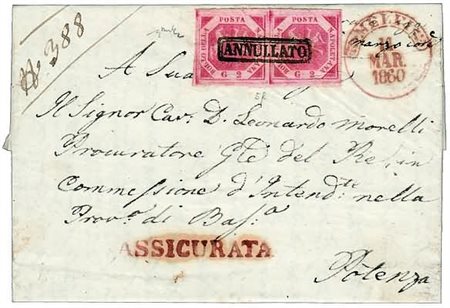 N. 388
POSTA NAPOLETANA BOLLO DELLA G 2
POSTA NAPOLETANA BOLLO DELLA G 2
ANNULLATO
MAR.
1860
A Sua
Il Signor Cav. D. Leonardo Morelli
Procuratore Gle del Re, in
Commessione d'Intendte nella
Provа di Basa
ASSICURATA
Potenza